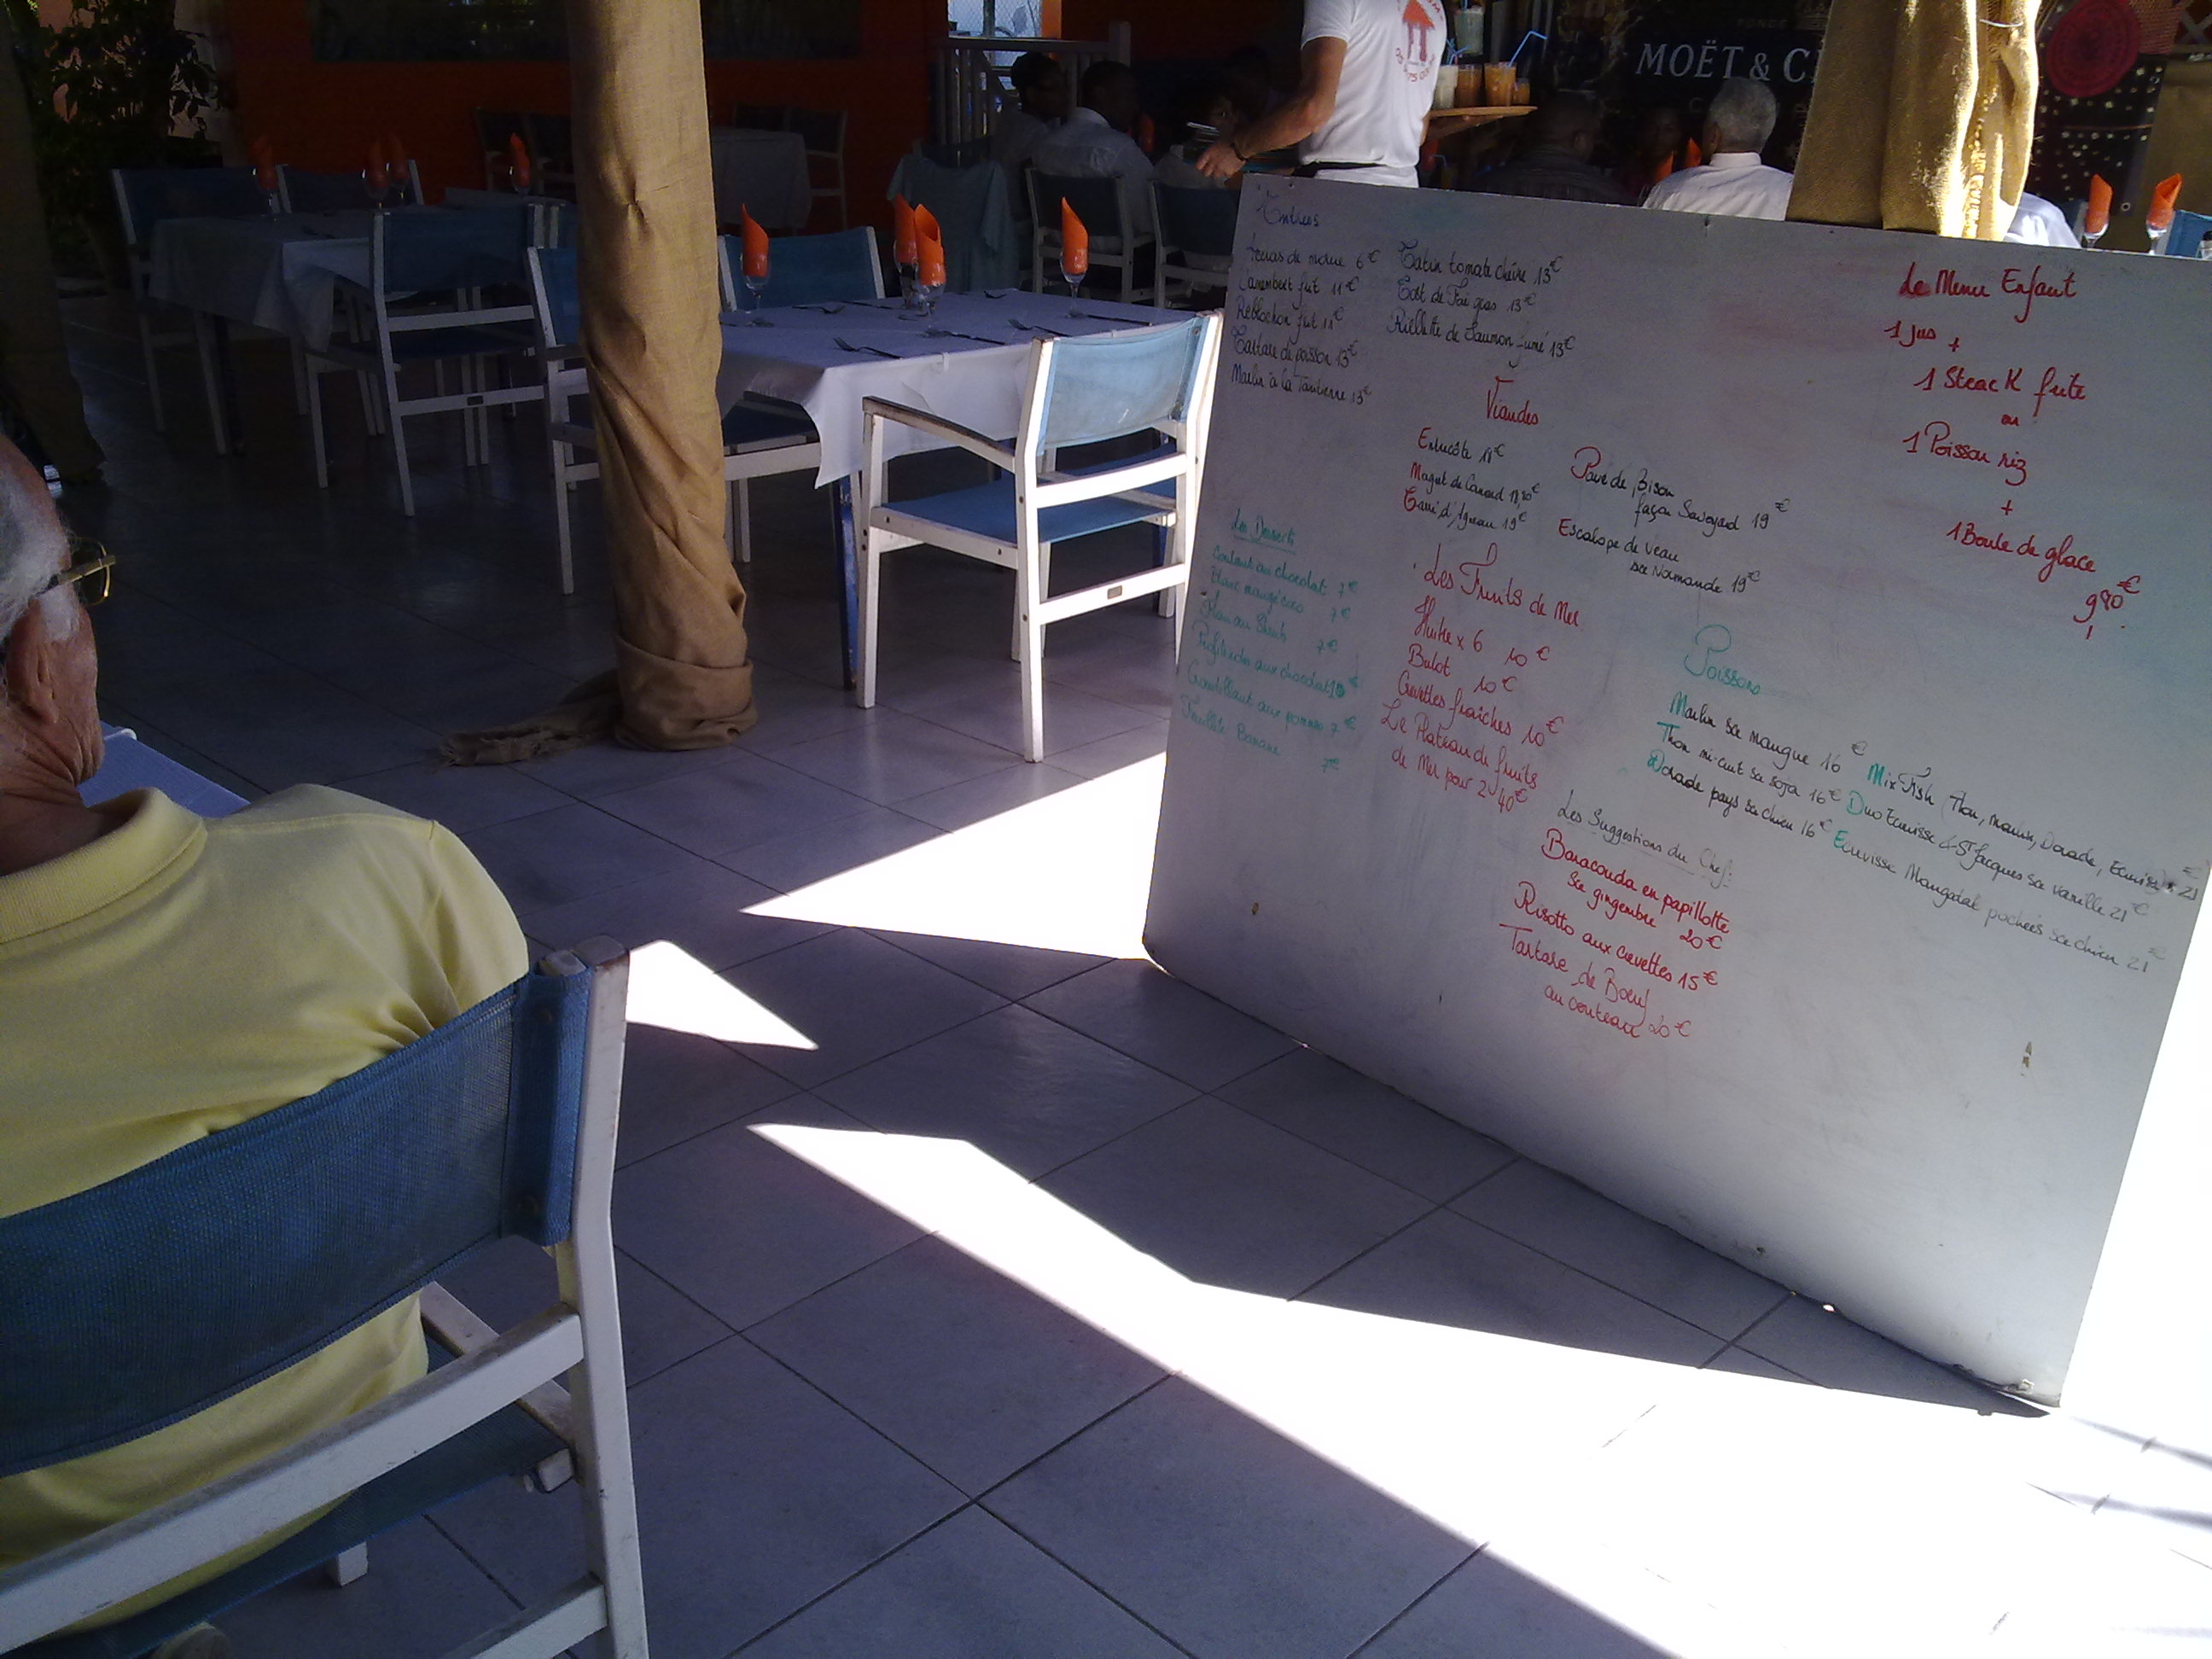 MOËT & C
Entrées
Accras de morue 6€
Camembert frit 11€
Reblochon frit 11€
Tartare de poisson 13€
Marlin à la Tahitienne 13€
Tatin tomate chèvre 13€
Tost de Foie gras 13€
Rillette de Saumon fumé 13€
Viandes
Entrecôte 18€
Magret de Canard 18,50€
Carré d'Agneau 19€
Pavé de Bison
façon Savoyard 19€
Escalope de veau
sce Normande 19€
Le Menu Enfant
1 Jus +
1 Steack frite
ou
1 Poisson riz
+
1 Boule de glace
9,90€
Les Desserts
Coulant au chocolat 7€
Blanc mangé coco 7€
Flan au 7€
Profiteroles aux chocolat 10€
Croustillant aux pommes 7€
Feuilleté Banane 7€
Les Fruits de Mer
Huitre x 6 10€
Bulot 10€
Crevettes fraîches 10€
Le Plateau de fruits
de Mer pour 2 40€
Poissons
Marlin sce mangue 16€
Thon mi-cuit sce soja 16€
Dorade pays sce chien 16€
Mix Fish (Thon, marlin, Dorade, Ecrevisse) 21€
Duo Ecrevisse & St Jacques sce vanille 21€
Ecrevisse pochées sce chien 21€
Les Suggestions du Chef:
Baracouda en papillotte
sce gingembre 20€
Risotto aux crevettes 15€
Tartare de Boeuf
au couteau 20€